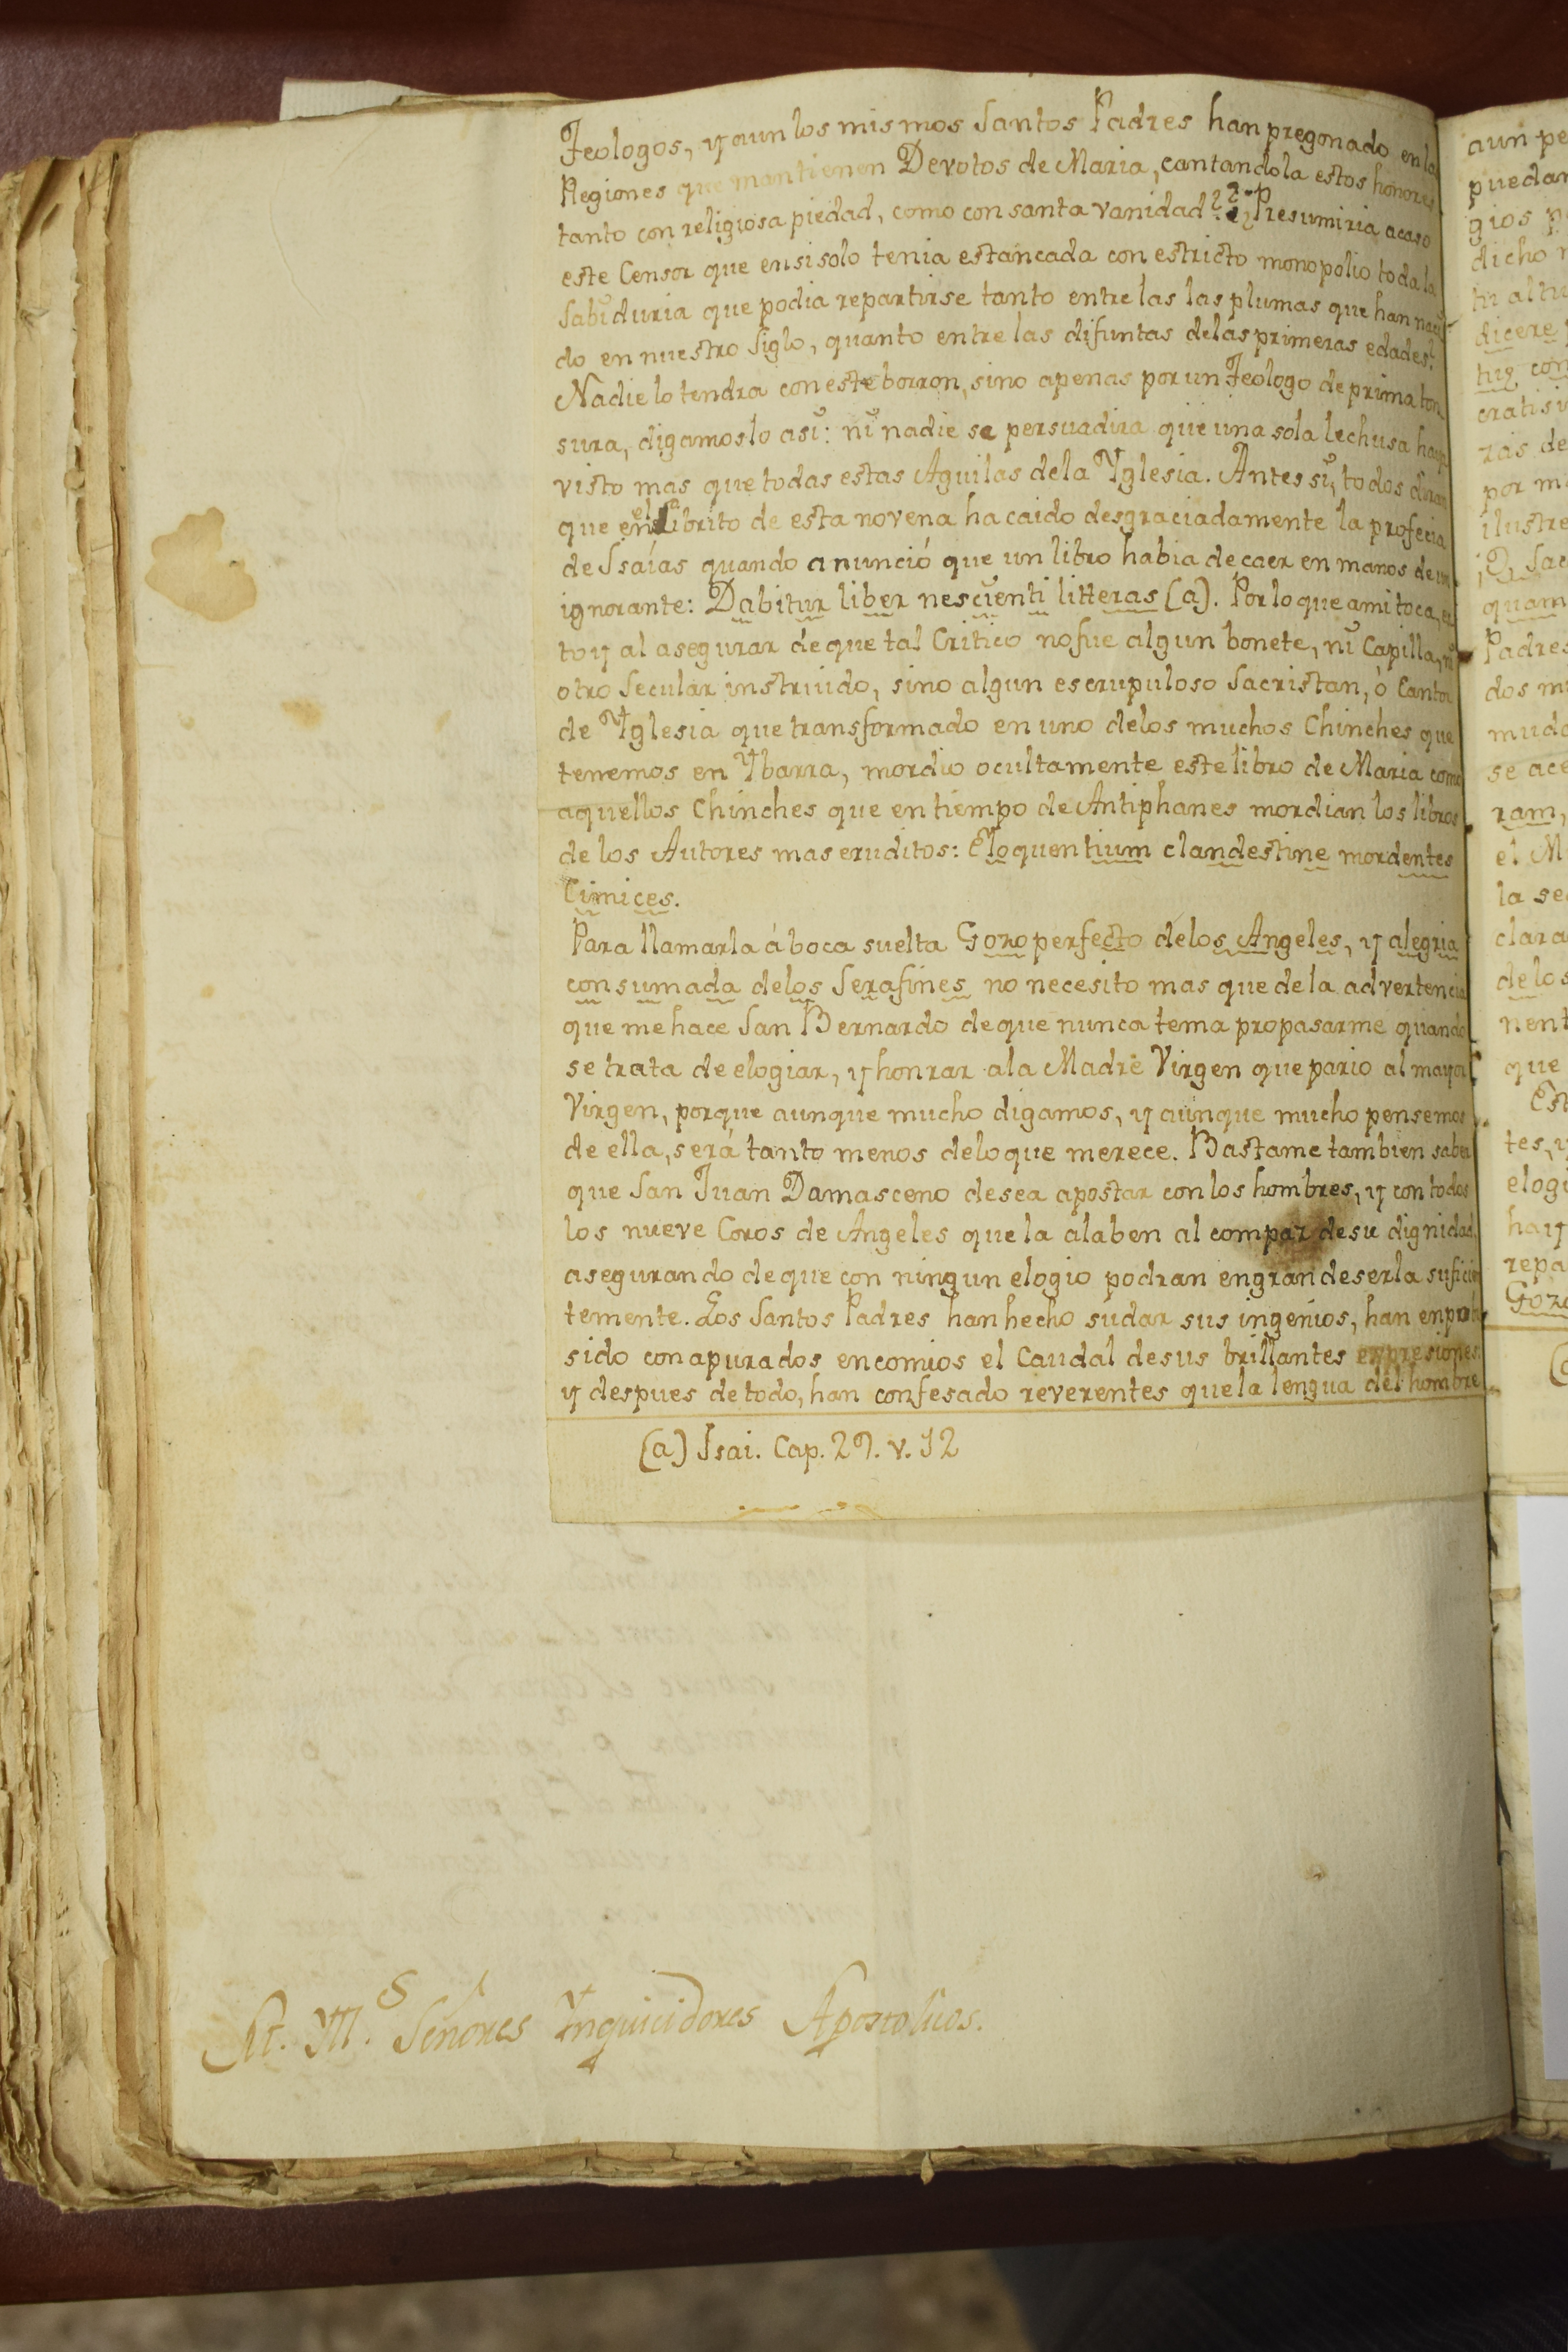 Teologos, y aun los mismos Santos Padres han pregonado en la
Regiones que mantienen Devotos de Maria, cantandola estos honores
tanto con religiosa piedad, como con santa vanidad? ¿Presumiria acaso
este Censor que en si solo tenia estancada con estricto monopolio toda la
Sabiduria que podia repartirse tanto entre las las plumas que han naci
do en nuestro Siglo, quanto entre las difuntas delas primeras edades?
Nadie lo tendra con este borron, sino apenas por un Teologo de prima ton
sura, digamoslo asi: ni nadie se persuadira que una sola lechusa haya
visto mas que todas estas Aguilas dela Yglesia. Antes si, todos diran
que en el librito de esta novena ha caido desgraciadamente la profecia
de Isaías quando anunció que un libro habia de caer en manos de un
ignorante: Dabitur liber nescienti litteras (a). Por lo que ami toca, es
toy al asegurar de que tal Critico no fue algun bonete, ni Capilla, ni
otro Secular instruido, sino algun escrupuloso Sacristan, ò Cantor
de Yglesia que transformado en uno delos muchos Chinches que
tenemos en Ybarra, mordio ocultamente este libro de Maria como
aquellos Chinches que en tiempo de Antiphanes mordian los libros
de los Autores mas eruditos: Eloquentium clandestine mordentes
Cimices.
Para llamarla á boca suelta Gozo perfecto delos Angeles, y alegria
consumada delos Serafines no necesito mas que de la advertencia
que me hace San Bernardo de que nunca tema propasarme quando
se trata de elogiar, y honrar ala Madre Virgen que pario al mayor
Virgen, porque aunque mucho digamos, y aunque mucho pensemos
de ella, será tanto menos delo que merece. Bastame tambien saber
que San Juan Damasceno desea apostar con los hombres, y con todos
los nueve Coros de Angeles que la alaben al compaz de su dignidad,
asegurando de que con ningun elogio podran engrandeserla suficien
temente. Los Santos Padres han hecho sudar sus ingenios, han
sido con apurados encomios el Caudal de sus brillantes expresiones
y despues de todo, han confesado reverentes que la lengua del hombre
(a) Isai. Cap. 29. v. 12
S
M. Señores Ynquicidores Apostolicos.
aun pe
puedan
gios
dicho
dicere
tuis con
zas de
por m
ilustre
quam
Padres
dos m
mudo
se ace
ram,
el M
la se
clara
delos
nent
que
Es
tes, y
elogi
hay
repa
Gozo